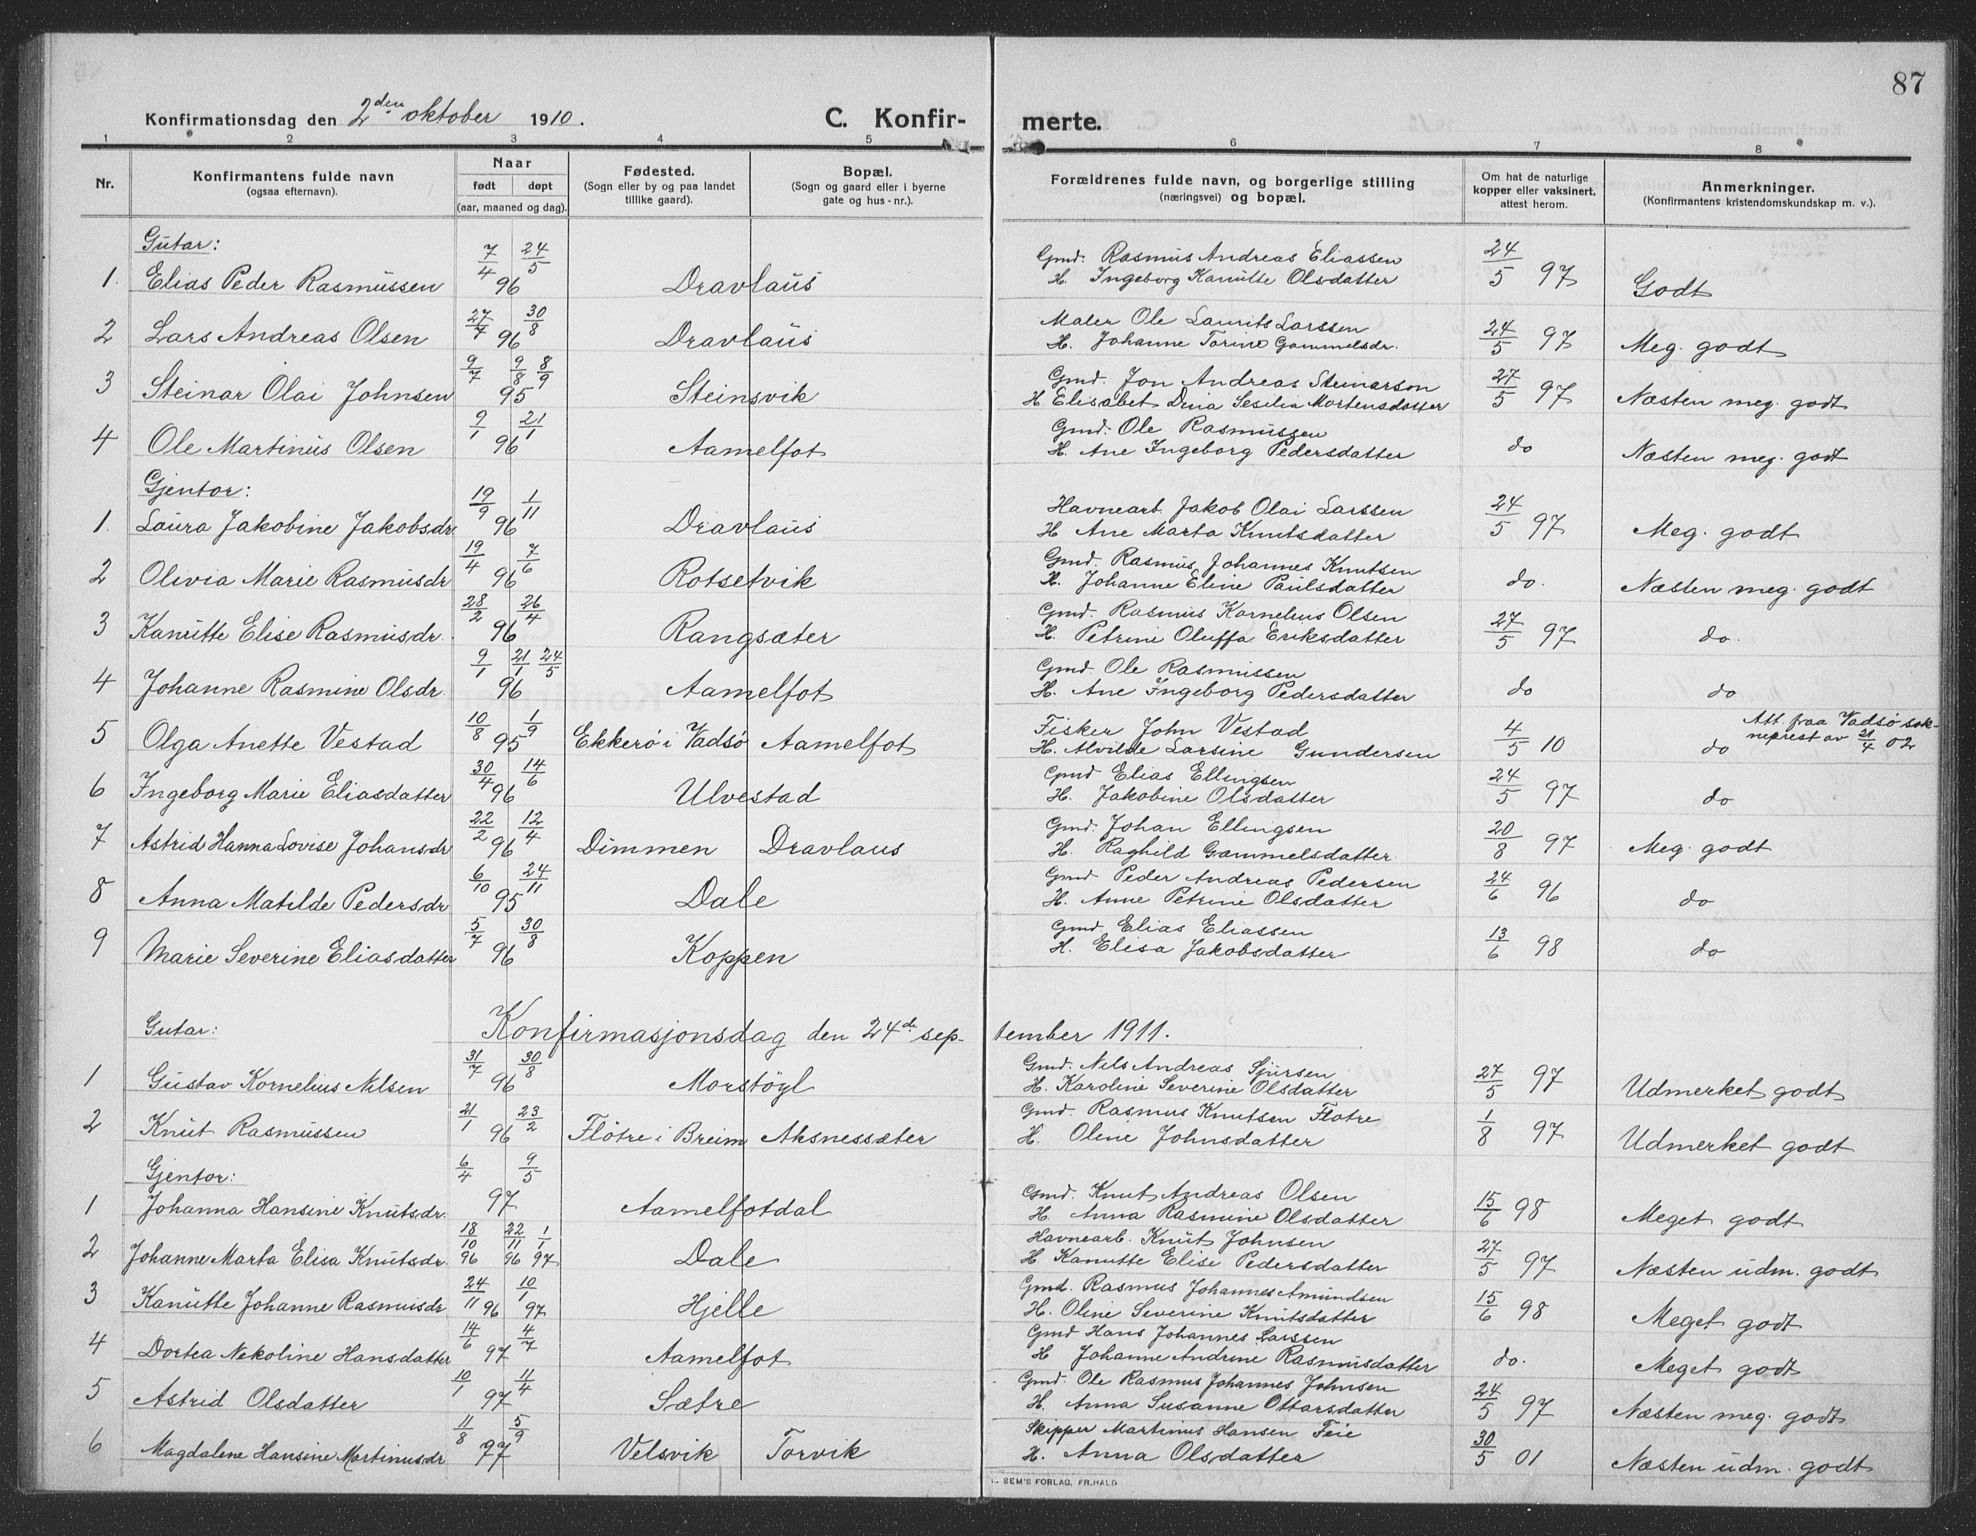 87
Konfirmationsdag den 2den oktober 1910. C. Konfirmerte.
1 2 3 4 5 6 7 8
Nr. Konfirmantens fulde navn (ogsaa efternavn). Naar født døpt (aar, maaned og dag). Fødested. (Sogn eller by og paa landet tillike gaard). Bopæl. (Sogn og gaard eller i byerne gate og hus-nr.). Forældrenes fulde navn, og borgerlige stilling (næringsvei) og bopæl. Om hat de naturlige kopper eller vaksinert, attest herom. Anmerkninger. (Konfirmantens kristendomskundskap m. v.).
Gutar:
1. Elias Peder Rasmussen 7/4 24/5 96 Dravlaus Gmd. Rasmus Andreas Eliassen H. Ingeborg Kanutte Olsdatter 24/5 97 Godt
2 Lars Andreas Olsen 27/7 30/8 96 Dravlaus Maler Ole Laurits Larssen H. Johanne Torine Gammelsdr. 24/5 97 Meg. godt
3 Steinar Olai Johnsen 9/7 9/8 8/9 95 Steinsvik Gmd. Jon Andreas Steinarson H Elisabet Dina Sesilia Mortensdatter 27/5 97 Næsten meg. godt
4 Ole Martinus Olsen 9/1 21/1 96 Aamelfot Gmd. Ole Rasmussen H. Ane Ingeborg Pedersdatter do Næsten meg. godt
Gjentor:
1. Laura Jakobine Jakobsdr 19/9 1/11 96 Dravlaus Havnearb. Jakob Olai Larssen H Ane Marta Knutsdatter 24/5 97 Meg. godt
2 Olivia Marie Rasmusdr 19/4 7/6 96 Rotsetvik Gmd. Rasmus Johannes Knutsen H. Johanne Eline Paulsdatter do. Næsten meg. godt
3 Kanutte Elise Rasmusdr. 28/2 26/4 96 Rangsæter Gmd. Rasmus Kornelius Olsen H. Petrine Oluffa Eriksdatter 27/5 97 do.
4 Johanne Rasmine Olsdr. 9/1 21/1 24/5 96 Aamelfot Gmd Ole Rasmussen H. Ane Ingeborg Pedersdatter do do
5 Olga Anette Vestad 10/8 1/9 95 Ekkerö i Vadsö Aamelfot Fisker John Vestad H. Alvilde Larsine Gundersen 4/5 10 do Att. fraa Vadsø sokneprest av 21/4 02
6 Ingeborg Marie Eliasdatter 30/4 14/6 96 Ulvestad Gmd Elias Ellingsen H. Jakobine Olsdatter 24/5 97 do
7 Astrid Hanna Lovise Johansdr 22/2 12/4 96 Dimmen Dravlaus Gmd. Johan Ellingsen H. Raghild Gammelsdatter. 20/8 97 Meg. godt
8 Anna Matilde Pedersdr 6/10 24/11 95 Dale Gmd Peder Andreas Pedersen H. Anne Petrine Olsdatter 24/6 96 do
9 Marie Severine Eliasdatter 5/7 30/8 96 Koppen Gmd Elias Eliassen H. Elisa Jakobsdatter 13/6 98 do
Gutar: Konfirmasjonsdag den 24de september 1911.
1 Gustav Kornelius Nilsen 31/7 30/8 96 Morstöyl Gmd. Nils Andreas Sjursen H. Karoline Severine Olsdatter 27/5 97 Udmerket godt
2 Knut Rasmussen 21/1 23/2 96 Flötre i Breim Aksnessæter Gmd. Rasmus Knutsen Flotre H. Oline Johnsdatter 1/8 97 Udmerket godt
Gjentor:
1 Johanna Hansine Knutsdr. 6/4 9/5 97 Aamelfotdal Gmd. Knut Andreas Olsen H. Anna Rasmine Olsdatter 15/6 98 Meget godt
2 Johanne Marta Elisa Knutsdr. 18/10 96 22/11 96 1/1 97 Dale Havnearb. Knut Johnsen H Kanutte Elise Pedersdatter 27/5 97 Næsten udm. godt
3 Kanutte Johanne Rasmusdr 24/11 96 10/1 97 Hjelle Gmd. Rasmus Johannes Amundsen H. Oline Severine Knutsdatter 15/6 98 Meget godt
4 Dortea Nekoline Hansdatter 14/6 4/7 97 Aamelfot Gmd Hans Johannes Larssen H Johanne Andrine Rasmusdatter do. Meget godt
5 Astrid Olsdatter 10/1 11/4 97 Sætre Gmd. Ole Rasmus Johannes Johnsen H. Anna Susanne Ottarsdatter 24/5 97 Næsten meg. godt
6 Magdalene Hansine Martinusdr 11/8 5/9 97 Velsvik Torvik Skipper Martinus Hansen Feie H. Anna Olsdatter 30/5 01 Næsten udm. godt
SEM'S FORLAG, FR.HALD